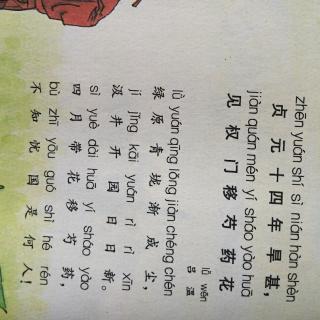 zhēn yuán shí sì nián hàn shèn
贞元十四年旱甚，
jiàn quán mén yí sháo yào huā
见权门移芍药花
lǚ wēn
吕温
lǜ yuán qīng lǒng jiàn chéng chén
绿原青垅渐成尘，
jí jǐng kāi yuán rì rì xīn
汲井开园日日新。
sì yuè dài huā yí sháo yào
四月带花移芍药，
bù zhī yōu guó shì hé rén
不知忧国是何人！